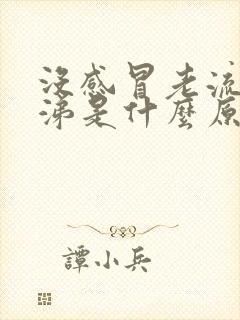 没感冒老流
涕是什麼原
譚小兵